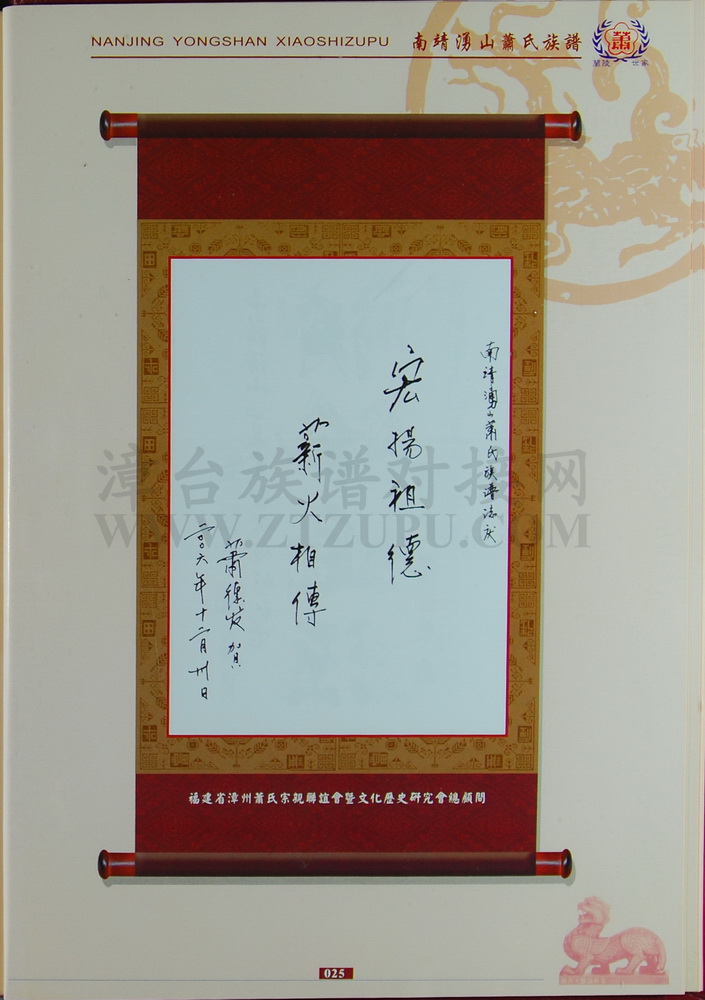 NANJING YONGSHAN XIAOSHIZUPU 南靖湧山蕭氏族譜
蕭
蘭陵 世家
南靖湧山蕭氏族譜誌慶
宏揚祖德
薪火相傳
蕭 賀
二〇〇六年十二月卅日
漳台族谱对接网
WWW.ZTZUPU.COM
福建省漳州蕭氏宗親聯誼會暨文化歷史研究會總顧問
025